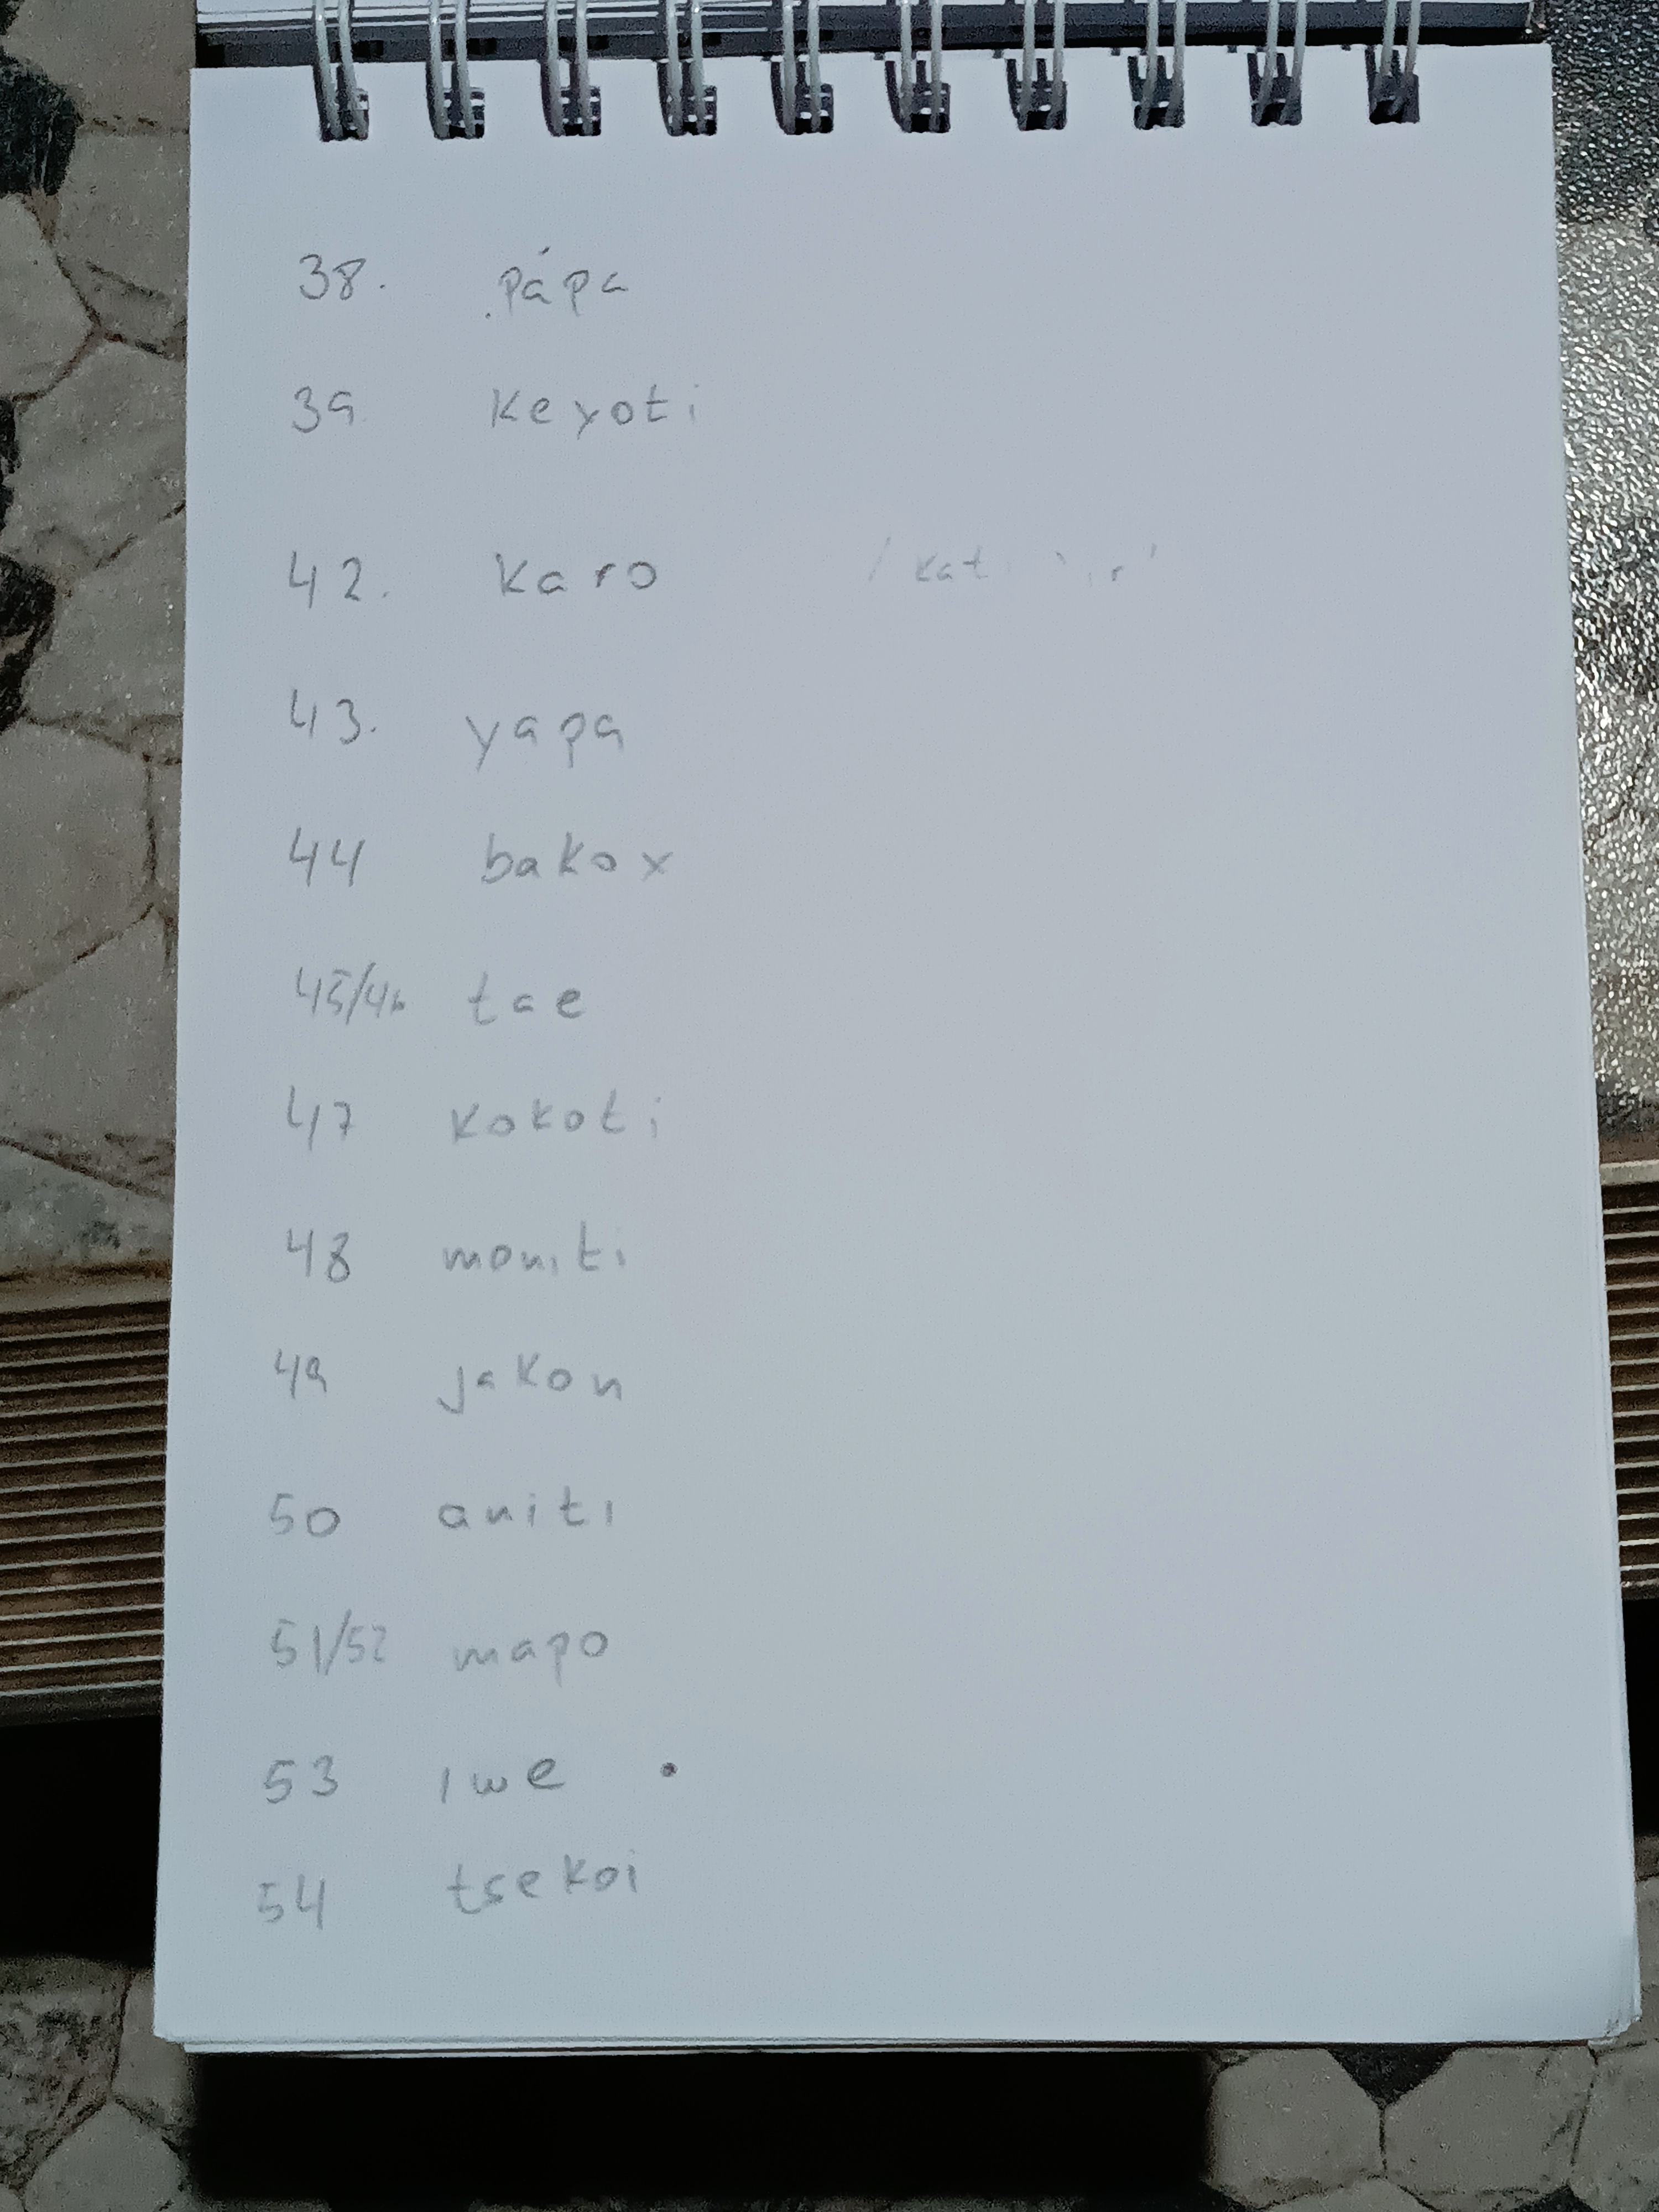 38. pápa
39 keyoti
42. karo
43. yapa
44 bakox
45/46 tae
47 kokoti
48 moniti
49 jakon
50 aniti
51/52 mapo
53 iwe
54 tsekoi